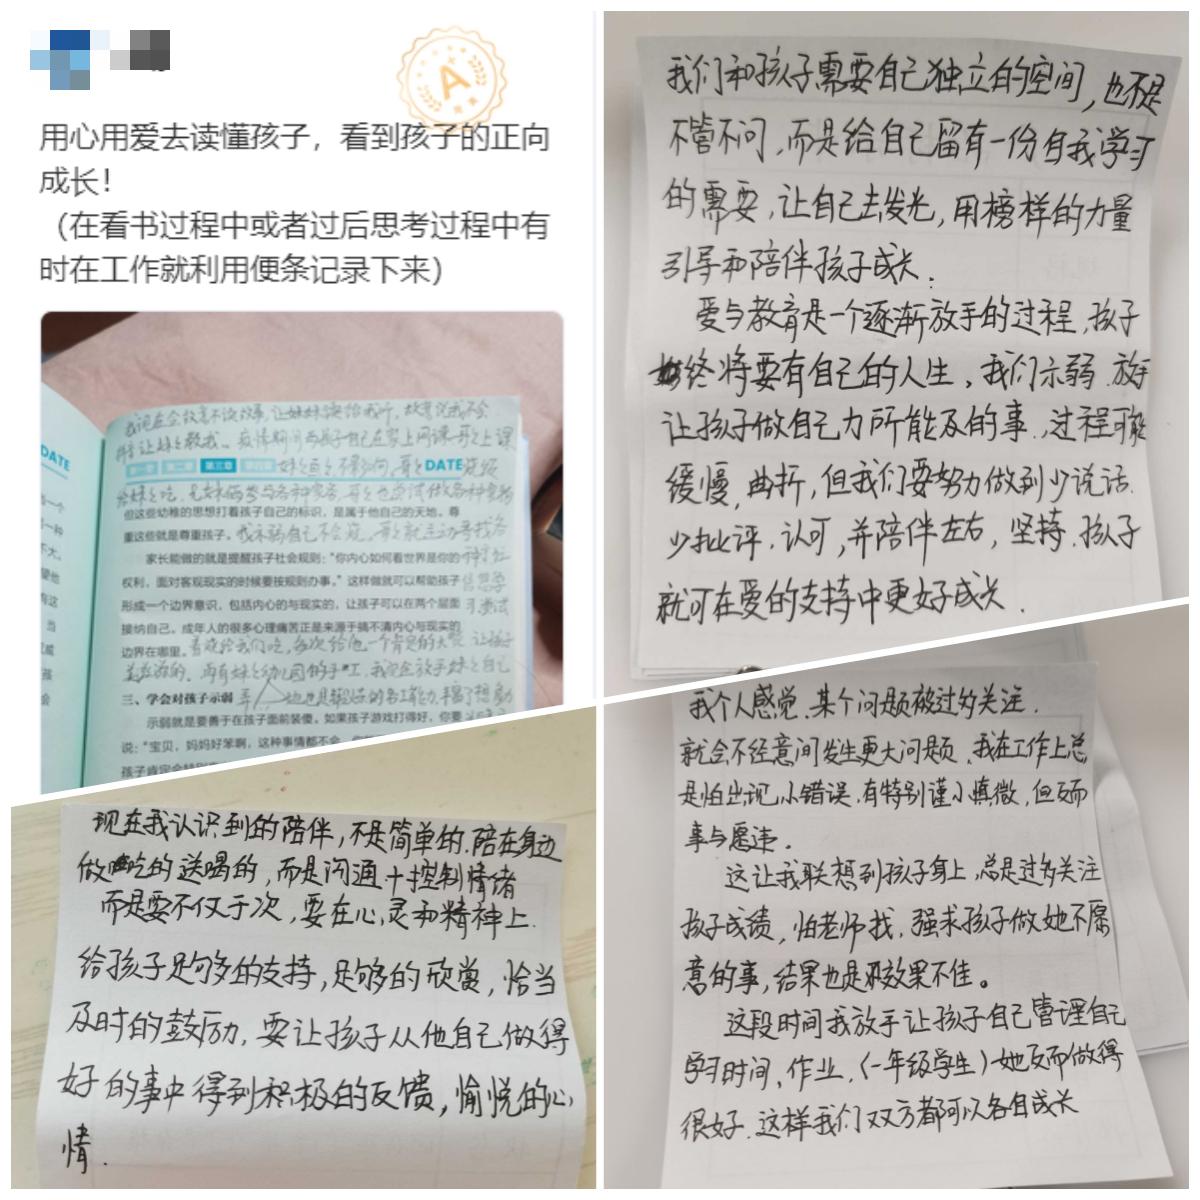 用心用爱去读懂孩子，看到孩子的正向
成长！
（在看书过程中或者过后思考过程中有
时在工作就利用便条记录下来）
A
DATE
我现在会故意不读故事，让妹妹读给我听，故意说我不会
让妹妹教我。疫情期间两孩子自己在家上网课，哥哥上课
第一章 第二章 第三章 第四章
DATE
给妹妹吃，兄妹俩参与各种家务，哥哥也尝试做各种食物
但这些幼稚的思想打着孩子自己的标识，是属于他自己的天地。尊
重这些就是尊重孩子。我示弱自己不会，哥哥就主动寻找各
家长能做的就是提醒孩子社会规则：“你内心如何看世界是你的
权利，面对客观现实的时候要按规则办事。”这样做就可以帮助孩子
形成一个边界意识，包括内心的与现实的，让孩子可以在两个层面
接纳自己。成年人的很多心理痛苦正是来源于搞不清内心与现实的
边界在哪里。
三、学会对孩子示弱
示弱就是要善于在孩子面前装傻。如果孩子游戏打得好，你要
说：“宝贝，妈妈好笨啊，这种事情都不会，
我们和孩子需要自己独立的空间，也不是
不管不问，而是给自己留有一份自我学习
的需要，让自己去发光，用榜样的力量
引导和陪伴孩子成长.
爱与教育是一个逐渐放手的过程，孩子
终将要有自己的人生，我们示弱.放手
让孩子做自己力所能及的事，过程可能
缓慢，曲折，但我们要努力做到少说话.
少批评.认可，并陪伴左右，坚持.孩子
就可在爱的支持中更好成长.
现在我认识到的陪伴，不是简单的.陪在身边
做吃的送喝的，而是沟通+控制情绪
而是要不仅于次，要在心灵和精神上.
给孩子足够多的支持，足够的欣赏，恰当
及时的鼓厉力，要让孩子从他自己做得
好的事中得到积极的反馈，愉悦的心
情.
我个人感觉.某个问题被过多关注.
就会不经意间发生更大问题.我在工作上总
是怕出现小错误.有特别谨小慎微，但反而
事与愿违。
这让我联想到孩子身上，总是过多关注
孩子成绩，怕老师找，强求孩子做她不愿
意的事，结果也是效果不佳。
这段时间我放手让孩子自己管理自己
学习时间、作业.（一年级学生）她反而做得
很好.这样我们双方都可以各自成长